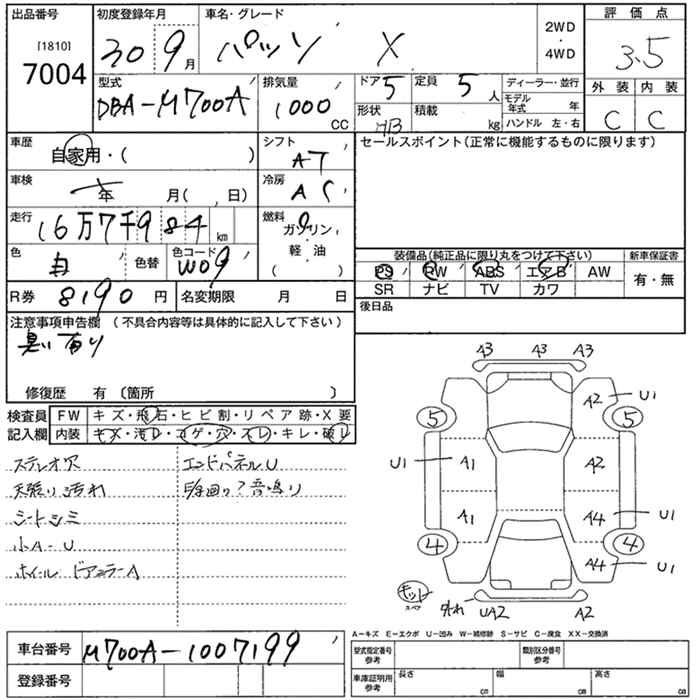 出品番号
[1810]
7004
初度登録年月
30 9月
車名・グレード
パッソ X
2WD
・
4WD
評価点
3.5
外装 内装
C C
型式
DBA-M700A
排気量
1000
CC
ドア 5
形状 HB
定員 5人
積載 kg
ディーラー・並行
モデル年式 年
ハンドル 左・右
車歴
自家用・( )
シフト
AT
セールスポイント(正常に機能するものに限ります)
車検
年 月( 、日)
冷房
AC
走行
16万7千984 km
燃料
ガソリン
・
軽・油
( )
色
白
色替
色コード
W09
装備品(純正品に限り丸をつけて下さい)
PS PW ABS エアB AW
SR ナビ TV カワ
新車保証書
有・無
R券 8190 円
名変期限 月 日
後日品
注意事項申告欄 (不具合内容等は具体的に記入して下さい)
臭い有り
修復歴 有 〔箇所 〕
検査員
記入欄
FW キズ・飛石・ヒビ割・リペア跡・X要
内装 キズ・汚レ・コゲ・穴・スレ・キレ・破レ
ステレオ穴
天張り汚れ
シートシミ
小A-U
ホイール ドアミラーA
エンドパネルU
音鳴り
A3 A3 A3
A2 U1
5 5
U1 A1 A2
A1 A4 U1
4 4
A4 U1
キット
スペア
外れ UA2 A2
A-キズ E-エクボ U-凹み W-補修跡 S-サビ C-腐食 XX-交換済
車台番号
M700A-1007199
登録番号
型式指定番号
参考
類別区分番号
参考
車庫証明用
参考
長さ cm
幅 cm
高さ cm